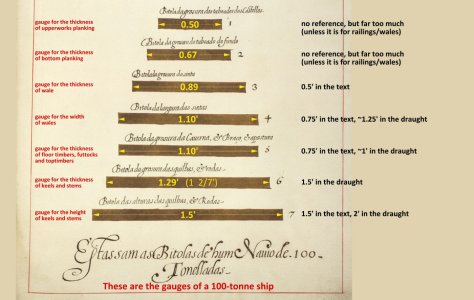 Bitola da grosura do taboado dos Castellos
gauge for the thickness
of upperworks planking
0.50
1
no reference, but far too much
(unless it is for railings/wales)
Bitola da grosura do taboado do fundo
gauge for the thickness
of bottom planking
0.67
2
no reference, but far too much
(unless it is for railings/wales)
Bitola da grosura do
gauge for the thickness
of wale
0.89
3
0.5' in the text
Bitola da largura das sintas
gauge for the width
of wales
1.10'
4
0.75' in the text, ~1.25' in the draught
Bitola da grosura da Caverna, & Braço,
gauge for the thickness
of floor timbers, futtocks
and toptimbers
1.10'
5
0.75' in the text, ~1' in the draught
Bitola da grosura das quilhas, & rodas
gauge for the thickness
of keels and stems
1.29' (1 2/7')
6
1.5' in the draught
Bitola das alturas das quilhas, & Rodas
gauge for the height
of keels and stems
1.5'
7
1.5' in the text, 2' in the draught
Estas sam as Bitolas de hum Navio de 100
Tonelladas
These are the gauges of a 100-tonne ship